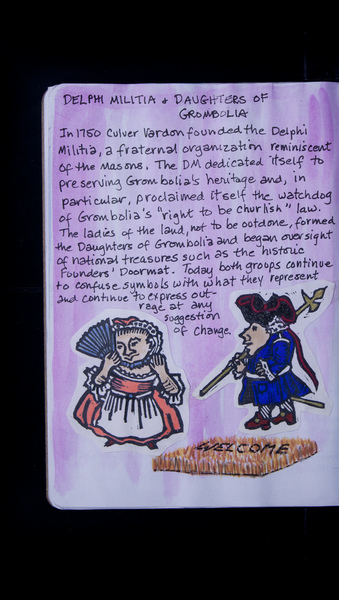 DELPHI MILITIA + DAUGHTERS OF
GROMBOLIA
In 1750 Culver Vardon founded the Delphi
Militia, a fraternal organization reminiscent
of the Masons. The DM dedicated itself to
preserving Grombolia's heritage and, in
particular, proclaimed itself the watchdog
of Grombolia's "right to be churlish" law.
The ladies of the land, not to be outdone, formed
the Daughters of Grombolia and began oversight
of national treasures such as the historic
Founders' Doormat. Today both groups continue
to confuse symbols with what they represent
and continue to express out-
rage at any
suggestion
of change.
WELCOME